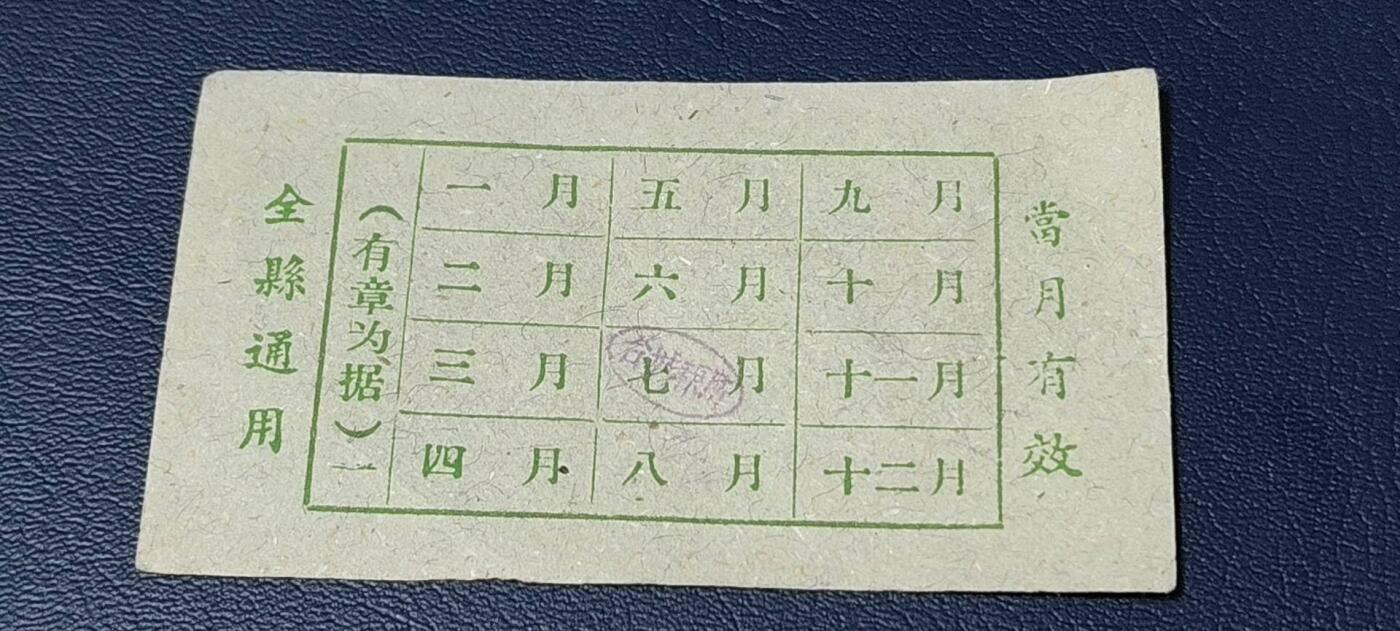 當月有效
全縣通用
(有章为据)
一月 五月 九月
二月 六月 十月
三月 七月 十一月
四月 八月 十二月